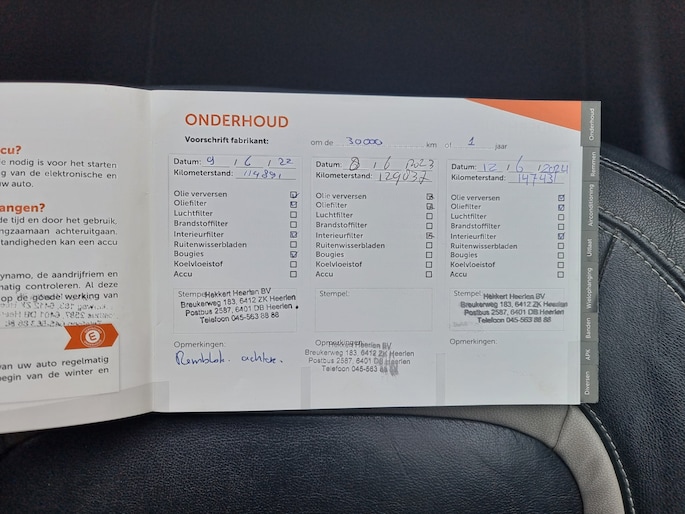 cu?
e nodig is voor het starten
g van de elektronische en
uw auto.
angen?
de tijd en door het gebruik,
ngzaamaan achteruitgaan.
standigheden kan een accu
dynamo, de aandrijfriem en
matig controleren. Al deze
op de goede werking van
E
van uw auto regelmatig
begin van de winter en
ONDERHOUD
Voorschrift fabrikant: om de 30000 km of 1 jaar
Datum: 9 / 6 / 22
Kilometerstand:
Olie verversen
Oliefilter
Luchtfilter
Brandstoffilter
Interieurfilter
Ruitenwisserbladen
Bougies
Koelvloeistof
Accu
Stempel:
Hekkert Heerlen BV
Breukerweg 183, 6412 ZK Heerlen
Postbus 2587, 6401 DB Heerlen
Telefoon 045-563 88 88
Opmerkingen:
Remblok. achter.
Datum: 8 / 6 / 2023
Kilometerstand: 129037
Olie verversen
Oliefilter
Luchtfilter
Brandstoffilter
Interieurfilter
Ruitenwisserbladen
Bougies
Koelvloeistof
Accu
Stempel:
Opmerkingen:
Hekkert Heerlen BV
Breukerweg 183, 6412 ZK Heerlen
Postbus 2587, 6401 DB Heerlen
Telefoon 045-563
Datum: 12 / 6 / 2024
Kilometerstand: 147431
Olie verversen
Oliefilter
Luchtfilter
Brandstoffilter
Interieurfilter
Ruitenwisserbladen
Bougies
Koelvloeistof
Accu
Stempel:
Hekkert Heerlen BV
Breukerweg 183, 6412 ZK Heerlen
Postbus 2587, 6401 DB Heerlen
Telefoon 045-563 88 88
Opmerkingen:
Onderhoud
Remmen
Airconditioning
Uitlaat
Wielophanging
Banden
APK
Diversen